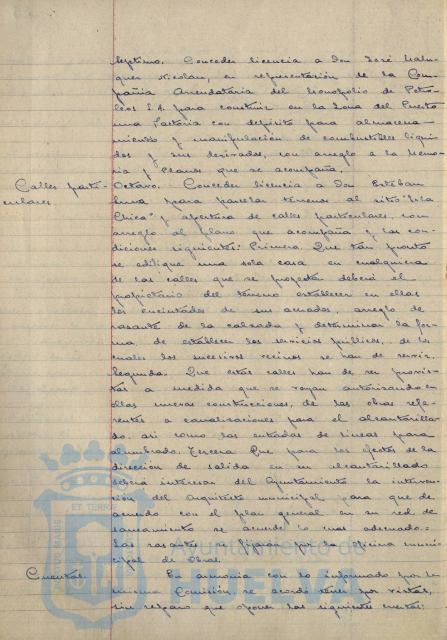 Septimo. Conceder licencia a Don José Malu-
quer Nicolau, en representación de la Com-
pañia Arrendataria del Monopolio de Petró-
leos S.A. para construir en la Zona del Puerto
una factoria con depósito para almacena-
miento y manipulación de combustibles liqui-
dos y sus derivados, con arreglo a la Memo-
ria y Planos que se acompaña.
Calles parti-
culares
Octavo. Conceder licencia a Don Esteban
para parcelar terrenos al sitio "Isla
Chica" y apertura de calles particulares, con
arreglo al plano que acompaña y las con-
diciones siguientes: Primera. Que tan pronto
se edifique una sola casa en cualquiera
de las calles que se proyecta deberá el
propietario del terreno establecer en ellas
los encintados de sus acerados, arreglo de
rasante de la calzada y determinar la for-
ma, de establecer los servicios publicos, de los
cuales los sucesivos vecinos se han de servir.
Segunda. Que estas calles han de ser provis-
tas a medida que se vayan autorizando en
ellas nuevas construcciones, de las obras refe-
rentes a canalizaciones para el alcantarilla-
do, asi como las entradas de lineas para
alumbrado. Tercera Que para los efectos de la
dirección de salida en su alcantarillado
deberá interesar del Ayuntamiento la interven-
ción del Arquitecto municipal para que de
acuerdo con el plan general en su red de
saneamiento se acuerde lo mas adecuado.
Las rasantes se fijarán por la oficina muni-
cipal de Obras.
Cuentas.
En armonia con lo informado por la
misma Comisión, se acordó tener por vistas,
sin reparo que oponer las siguientes cuentas:
ET TERRAE
Ayuntamiento de
HUELVA